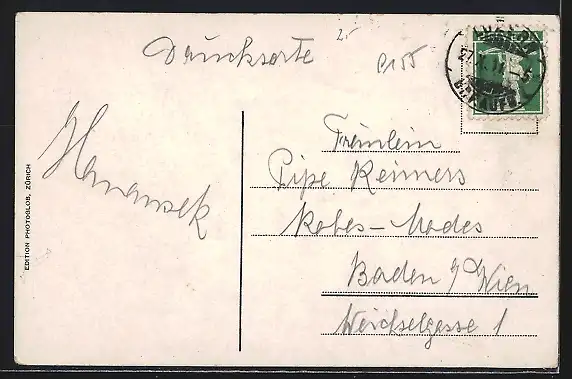 Drucksorte
2.-
C155
Hanausek
EDITION PHOTOGLOB, ZÜRICH
Fräulein
Pipe Reiners
Robes-Modes
Baden b/Wien
Weichselgasse 1